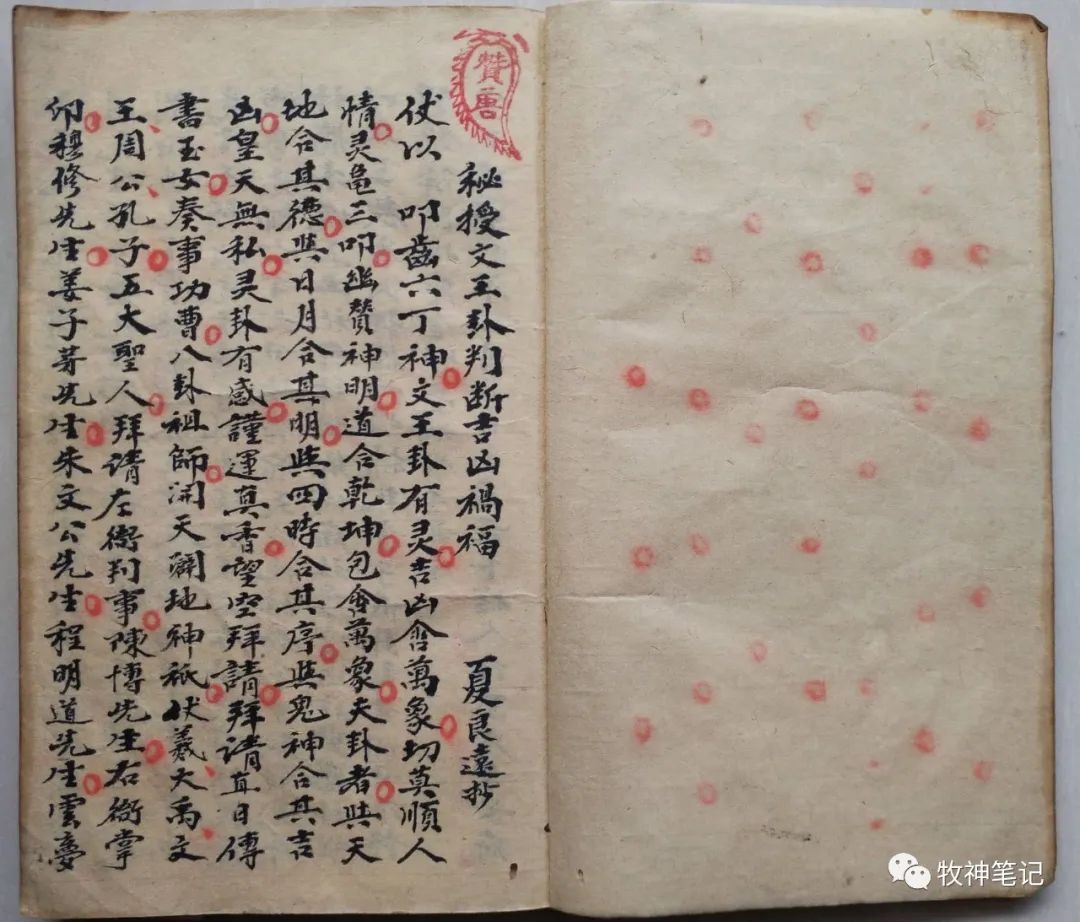 贊
秘授文王卦判断吉凶禍福 夏良遠抄
伏以 叩齒六丁神文王卦有灵吉凶含萬象切莫順人
情灵龟三叩幽贊神明道合乾坤包含萬象夫卦者與天
地合其德與日月合其明與四時合其序與鬼神合其吉
凶皇天無私灵卦有感謹運真香望空拜請拜请直日傅
書玉女奏事功曹八卦祖師開天闢地神祇伏羲大禹文
王周公孔子五大聖人拜请左衙判事陳博先生右衙掌
印穆修先生姜子芽先生朱文公先生程明道先生雲夢
牧神笔记